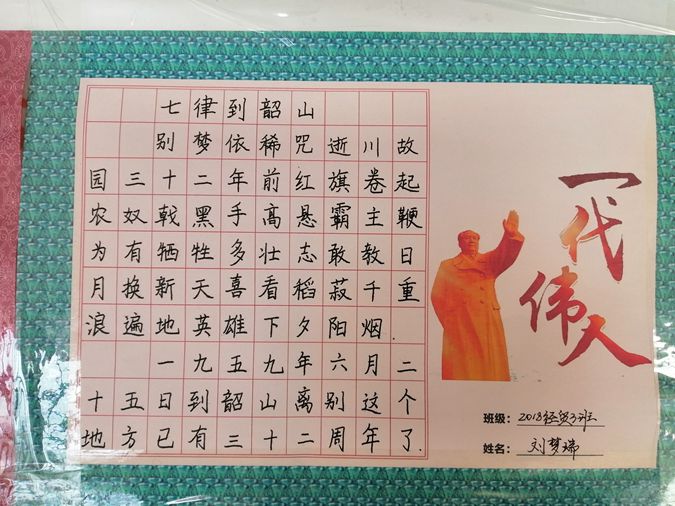 七律到韶山
别梦依稀咒逝川故
园三十二年前红旗卷起
农奴戟黑手高悬霸主鞭
为有牺牲多壮志敢教日
月换新天喜看稻菽千重
浪遍地英雄下夕阳烟.
一九五九年六月二
十五日到韶山离别这个
地方已有三十二周年了.
一代
伟人
班级：2018经贸3班
姓名：刘梦瑞